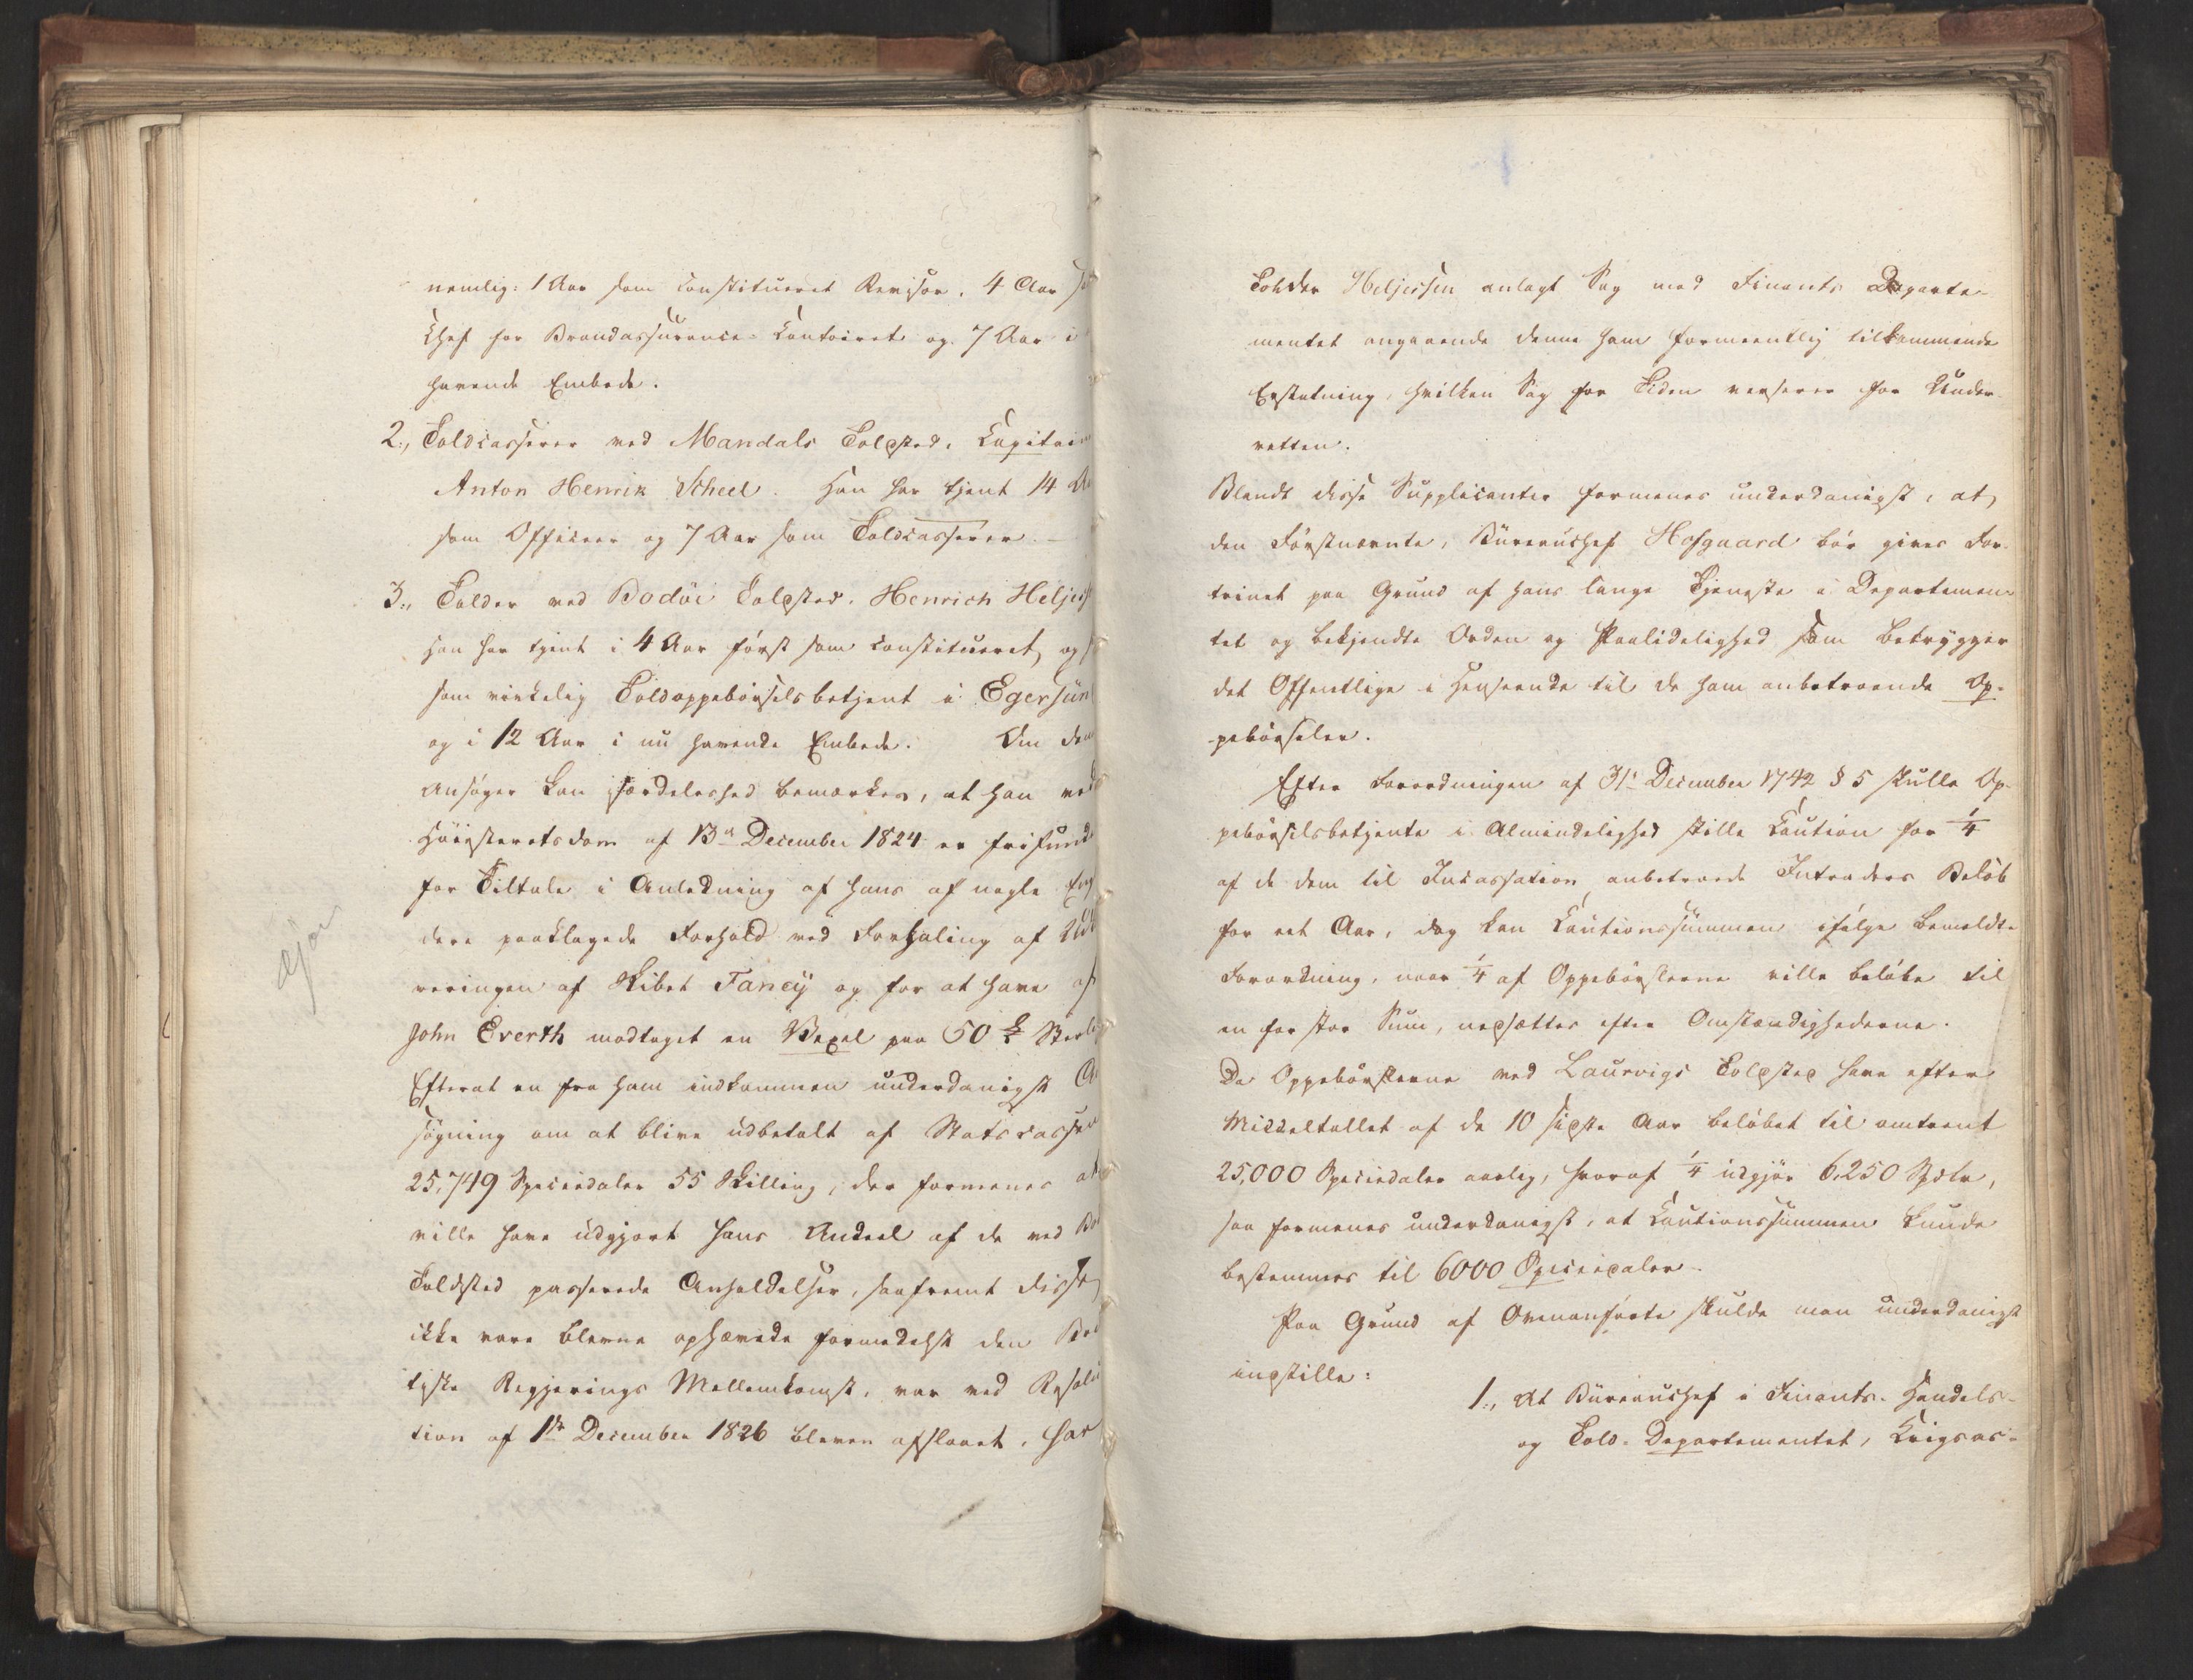 nemlig: 1 Aar som constitueret Revisor, 4 Aar som
Chef for Brandassurance-Contoiret og 7 Aar i
havende Embede.
2., Toldcasserer ved Mandals Toldsted, Capitain
Anton Henrik Scheel. Han har tjent 14 Aar
som Officeer og 7 Aar som Toldcasserer.
3., Tolder ved Bodöe Toldsted, Henrich Heljess
Han har tjent i 4 Aar først som constitueret og s
som virkelig Toldoppebørselsbetjent i Egersun
og i 12 Aar i nu havende Embede. Om den
Ansøger kan særdeleshed bemærkes, at han ved
Høiesteretsdom af 13de December 1824 er frifund
for Tiltale i Anledning af hans af nogle Eng
dere paaklagede Forhold ved Forhaling af Udk
reringen af Skibet Fancy og for at have af
John Everth modtaget en Vexel paa 50 £ Sterl
Efterat en fra ham indkommen underdanigst An
søgning om at blive udbetalt af Statscassen
25,749 Speciedaler 55 Skilling, der formenes at
ville have udgjort hans Andeel af de ved Bod
Toldsted passerede Anholdelser, saafremt disse
ikke vare blevne ophævede formedelst den Brit
tiske Regjerings Mellemkomst, var ved Resolu
tion af 1ste December 1826 bleven afslaaet, har
Ager
Tolder Heljessen anlagt Sag mod Finants Departe-
mentet angaaende denne ham formeentlig tilkommende
Erstatning, hvilken Sag for Tiden verserer for Under-
retten.
Blandt disse Supplicanter formenes underdanigst, at
den Førstnævnte, Büreauchef Hofgaard bør gives For-
trinet paa Grund af hans lange Tjeneste i Departemen-
tet og bekjendte Orden og Paalidelighed som betrygger
det Offentlige i Henseende til de ham anbetroende Op-
pebørseler.
Efter Forordningen af 31te December 1742 § 5 skulle Op-
pebørselsbetjente i Almindelighed stille Caution for 1/4
af de dem til Incassation anbetroede Intraders Beløb
for eet Aar, dog kan Cautionssummen ifølge bemeldte
Forordning, naar 1/4 af Oppebørslerne ville beløbe til
en for stor Sum, nedsættes efter Omstændighederne.
Da Oppebørslerne ved Laurvigs Toldsted have efter
Middeltallet af de 10 sidste Aar beløbet til omtrent
25,000 Speciedaler aarlig, hvoraf 1/4 udgjør 6,250 Spdlr,
saa formenes underdanigst, at Cautionssummen kunde
bestemmes til 6000 Speciedaler.
Paa Grund af Ovenanførte skulde man underdanigst
indstille:
1., At Büreauchef i Finants- Handels-
og Told-Departementet, Krigsas-